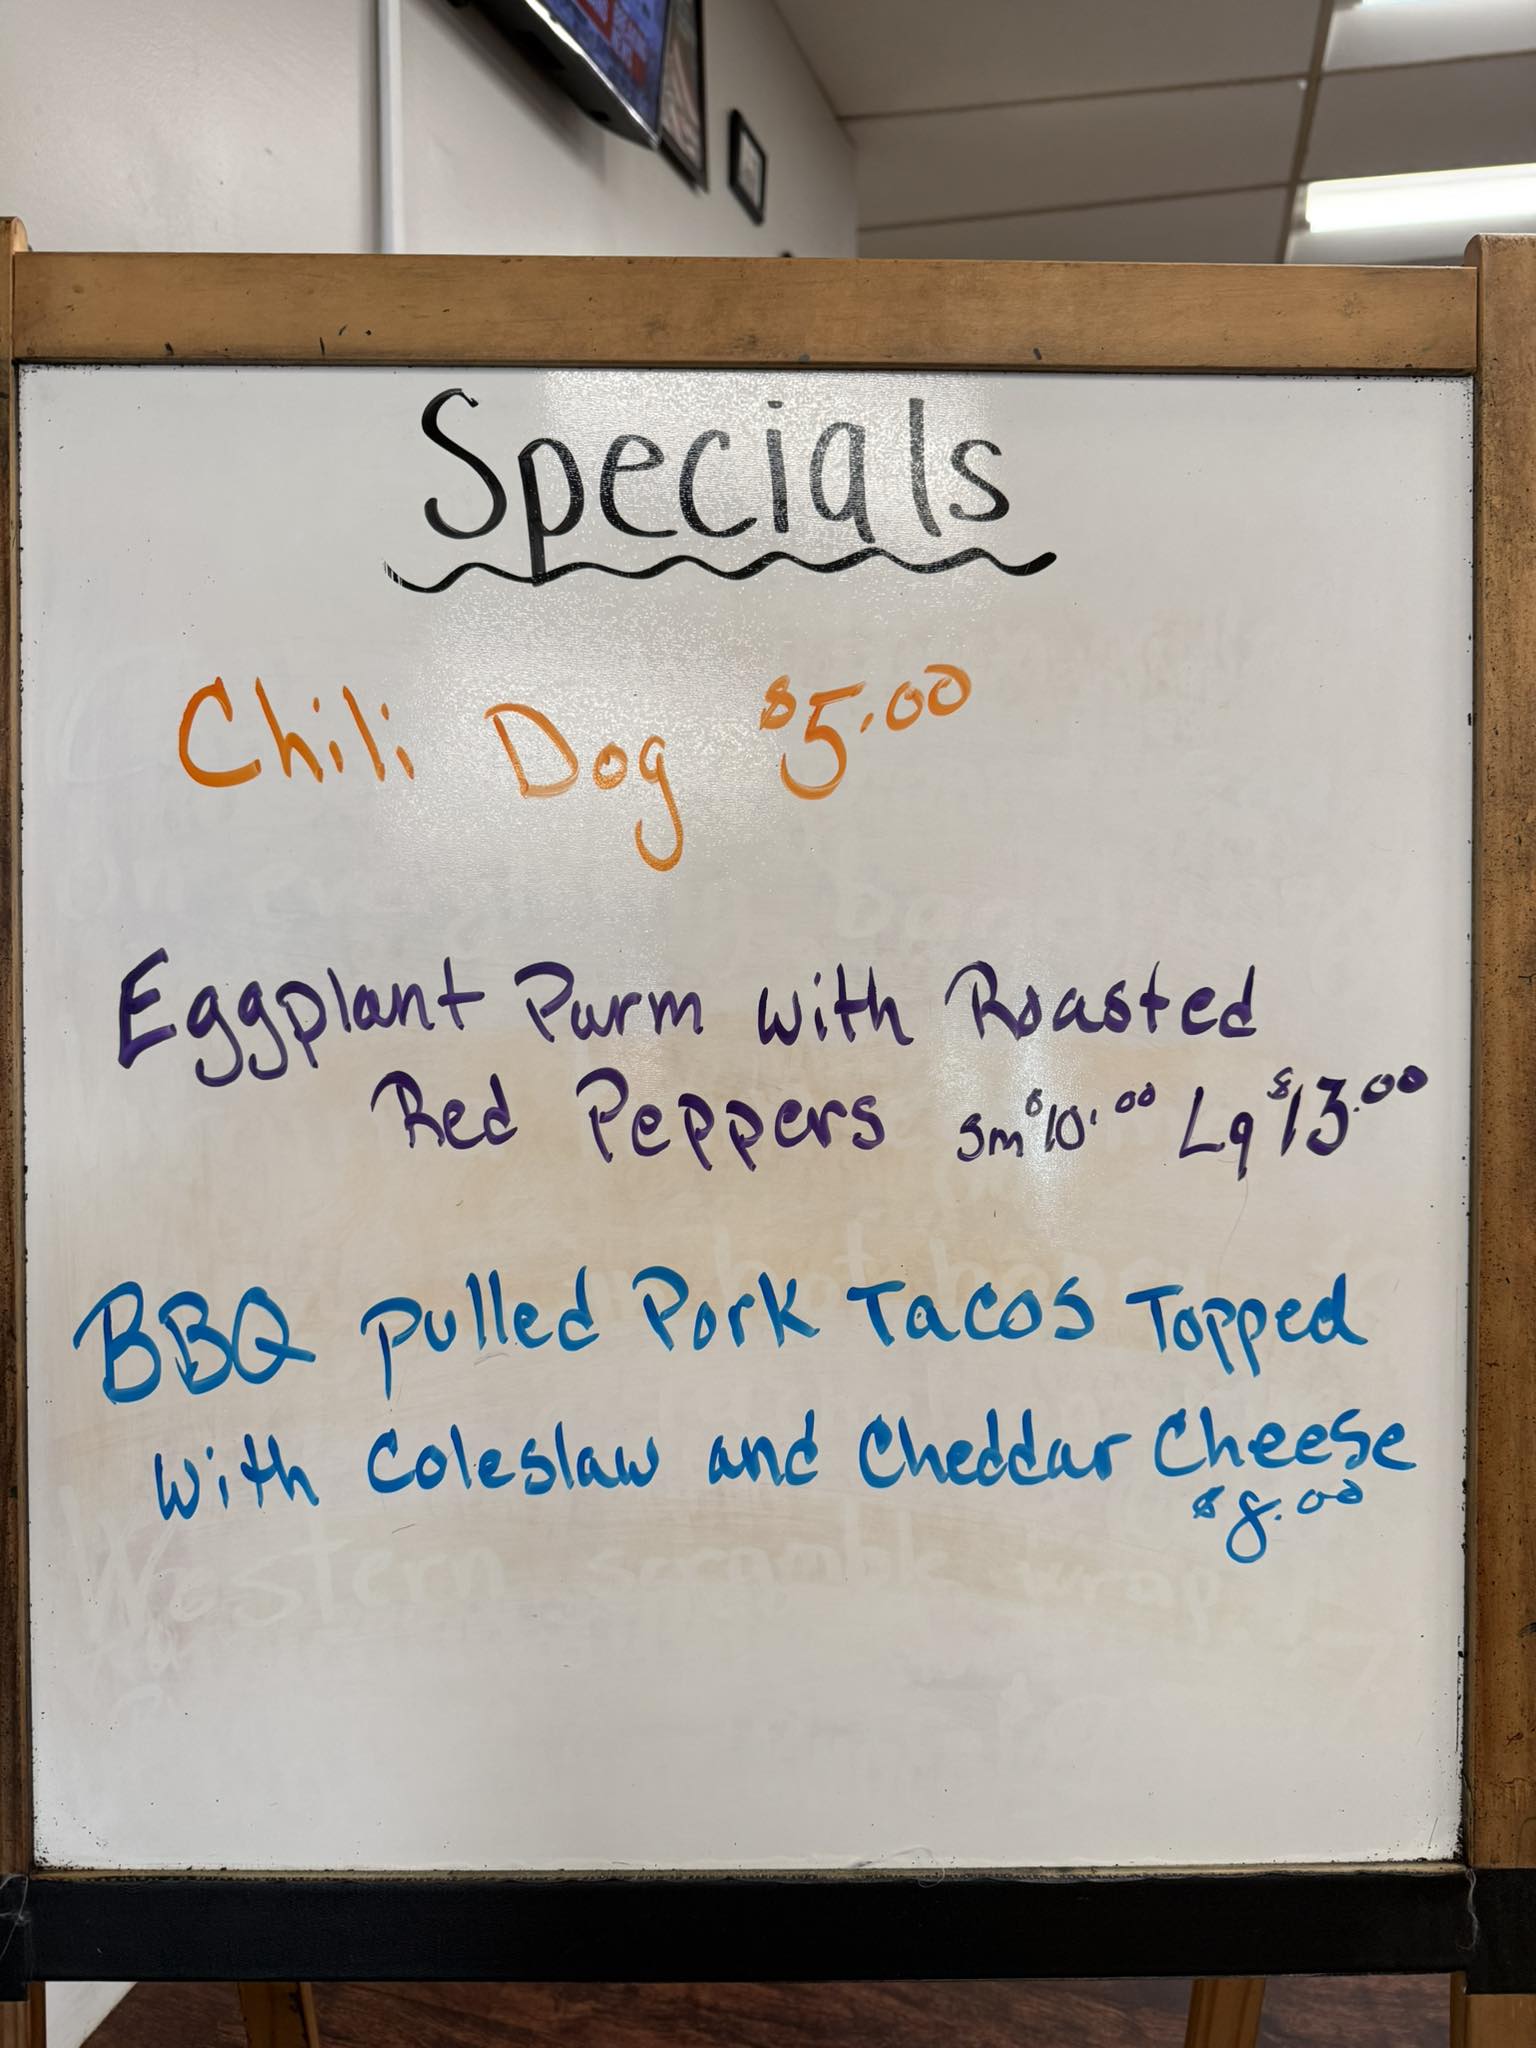 Specials
Chili Dog $5.00
Eggplant Parm with Roasted
Red Peppers Sm $10.00 Lg $13.00
BBQ Pulled Pork Tacos Topped
with Coleslaw and Cheddar Cheese
$8.00
Western scramble wrap